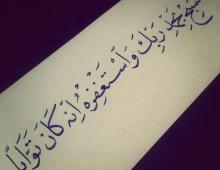 سبح بحمد ربك وَاسْتَغْفِرْهُ إِنَّهُ كَانَ تَوَّابًا